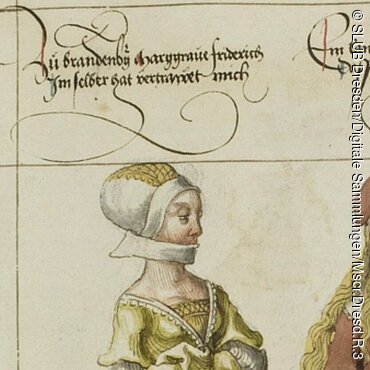 Zů brandenbůrg Marggrave friderich
Im selber hat vertrawet mich
Ein
© SLUB Dresden/Digitale Sammlungen/Mscr.Dresd.R.3